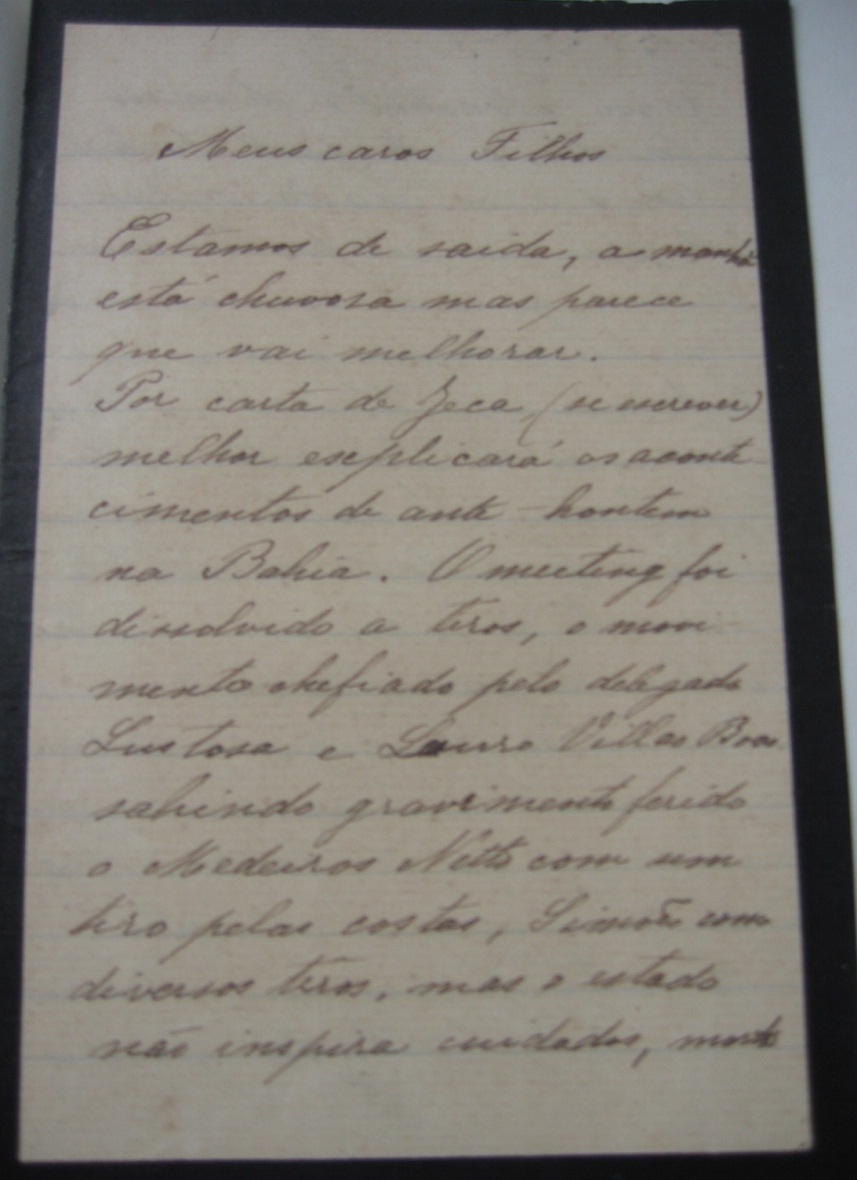 Meus caros Filhos
Estamos de saida, a manhã
está chuvosa mas parece
que vai melhorar.
Por carta de Zeca (se escrever)
melhor explicará os aconte-
cimentos de ante-hontem
na Bahia. O meeting foi
dissolvido a tiros, o movi-
mento chefiado pelo delegado
Lustosa e Lauro Villas Boas
sahindo gravimente ferido
o Medeiros Netto com um
tiro pelas costas, Simões com
diversos tiros, mas o estado
não inspira cuidados, morto